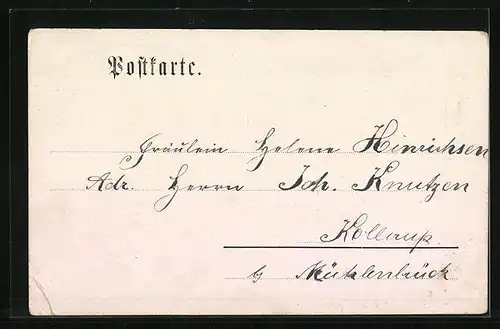 Postkarte.
Fräulein Helene Hinrichsen
Adr. Herrn Joh. Knutzen
Kollerup
b/ Mühlenbrück